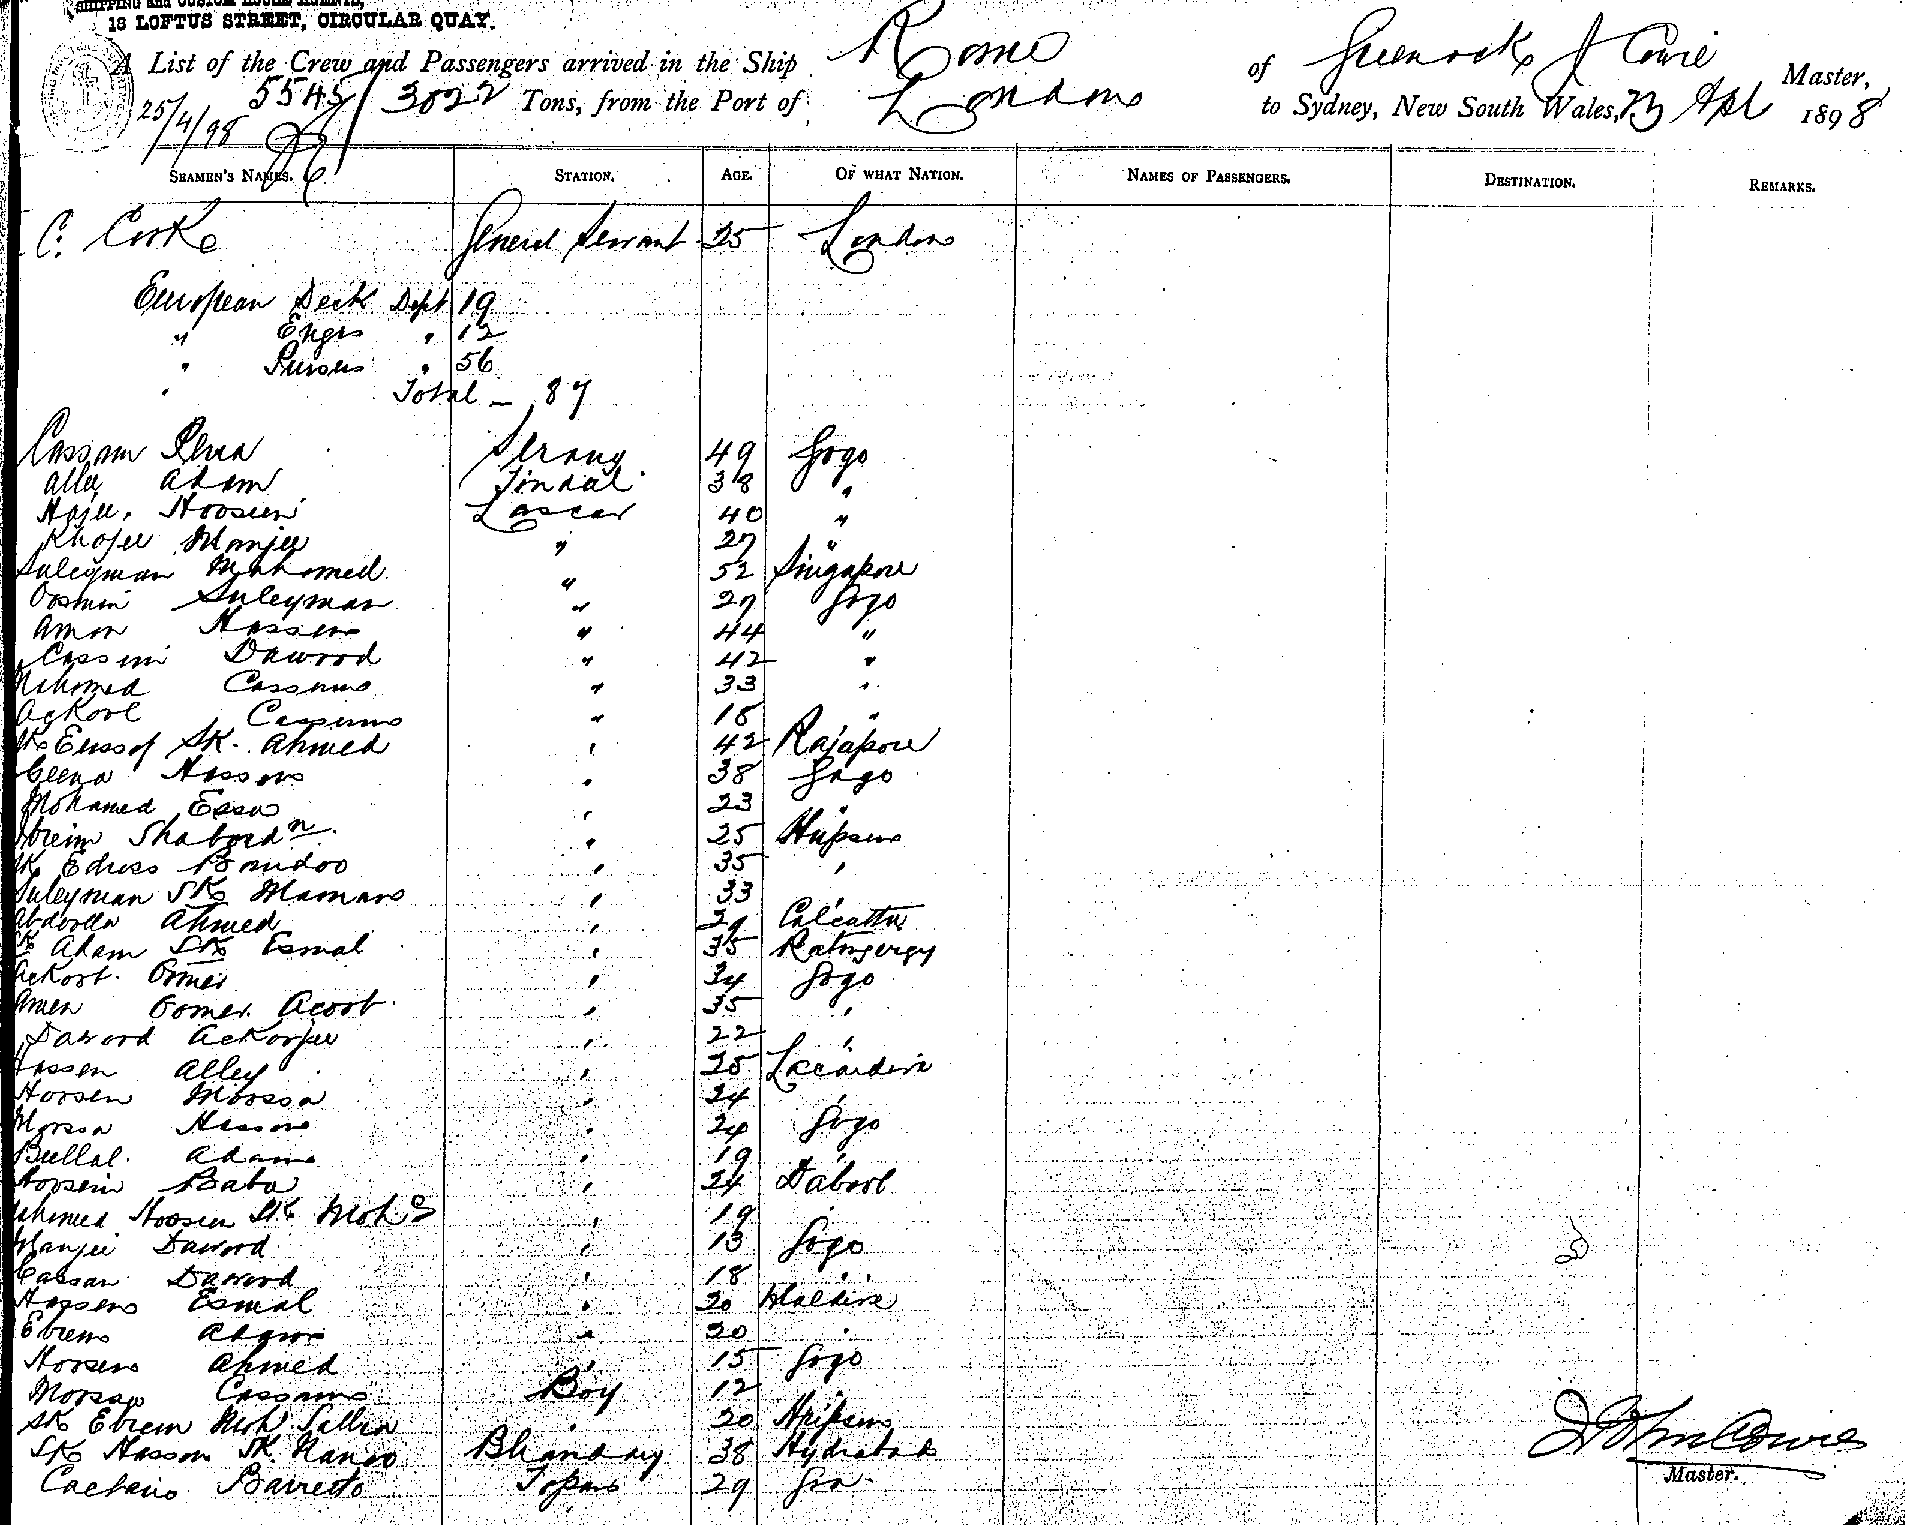 SHIPPING AND CUSTOM HOUSE AGENTS,
13 LOFTUS STREET, CIRCULAR QUAY.
A List of the Crew and Passengers arrived in the Ship Rome of Greenock J Cowie Master,
25/4/98 5545/3022 Tons, from the Port of London to Sydney, New South Wales, 23 Apl 1898
SEAMEN'S NAMES. STATION. AGE. OF WHAT NATION. NAMES OF PASSENGERS. DESTINATION. REMARKS.
C. Cooke General Servant 25 London
European Deck Dept 19
" Engrs " 12
" Pursers " 56
" Total - 87
Cassam Serang 49 Gogo
Allee Adam Tindal 38 "
Hajee Hoosein Lascar 40 "
Khojee Manjee " 27 "
Suleyman Mahomed " 52 Singapore
Oosman Suleyman " 27 Gogo
Amon Hassen " 44 "
Cassim Dawood " 42 "
Mahomed Cassum " 33 "
Ackool Cassum " 18 "
Sk Eussof Sk. Ahmed " 42 Rajapore
Hasson " 38 Gogo
Mohamed Essa " 23 "
Ebreim Shabordn " 25 Hupson
Sk Edross Bandoo " 35 "
Suleyman Sk Maman " 33 "
Abdoola Ahmed " 29 Calcutta
Sk Adam Sk Esmal " 35 Ratngergy
Ackoot Omer " 34 Gogo
Amen Oomer Acoot " 35 "
Dawood Ackorjee " 22 "
Hassen Alley " 25
Hoosen Moossa " 24 "
Moosa Hassen " 24 Gogo
Bullal Adam " 19 "
Hoosein Baba " 24 Dabool
Ahmed Hoosen Sk Mohd " 19 "
Manjee Dawood " 13 Gogo
Cassam Dawood " 18 "
Hassen Esmal " 20
Ebrem " 20 "
Hoosen Ahmed " 15 Gogo
Moosa Cassum Boy 12 "
Sk Ebrem Moh " 20
Sk Hasson Sk. Nanoo Bhandary 38 Hydrabad
Caetano Barretto Topas 29 Goa
John Cowie
Master.